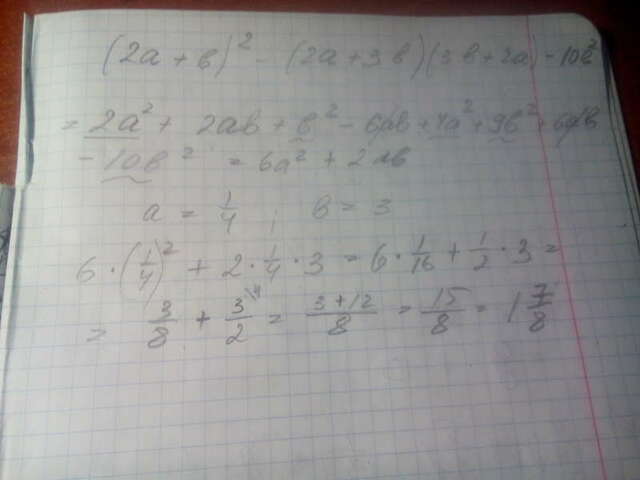 (2a + в)² - (2a + 3в)(3в + 2a) - 10в²
= 2a² + 2aв + в² - 6aв + 4a² + 9в² + 6aв
- 10в² = 6a² + 2aв
a = 1/4 ; в = 3
6 · (1/4)² + 2 · 1/4 · 3 = 6 · 1/16 + 1/2 · 3 =
= 3/8 + 3/2 \4 = 3+12/8 = 15/8 = 1 7/8